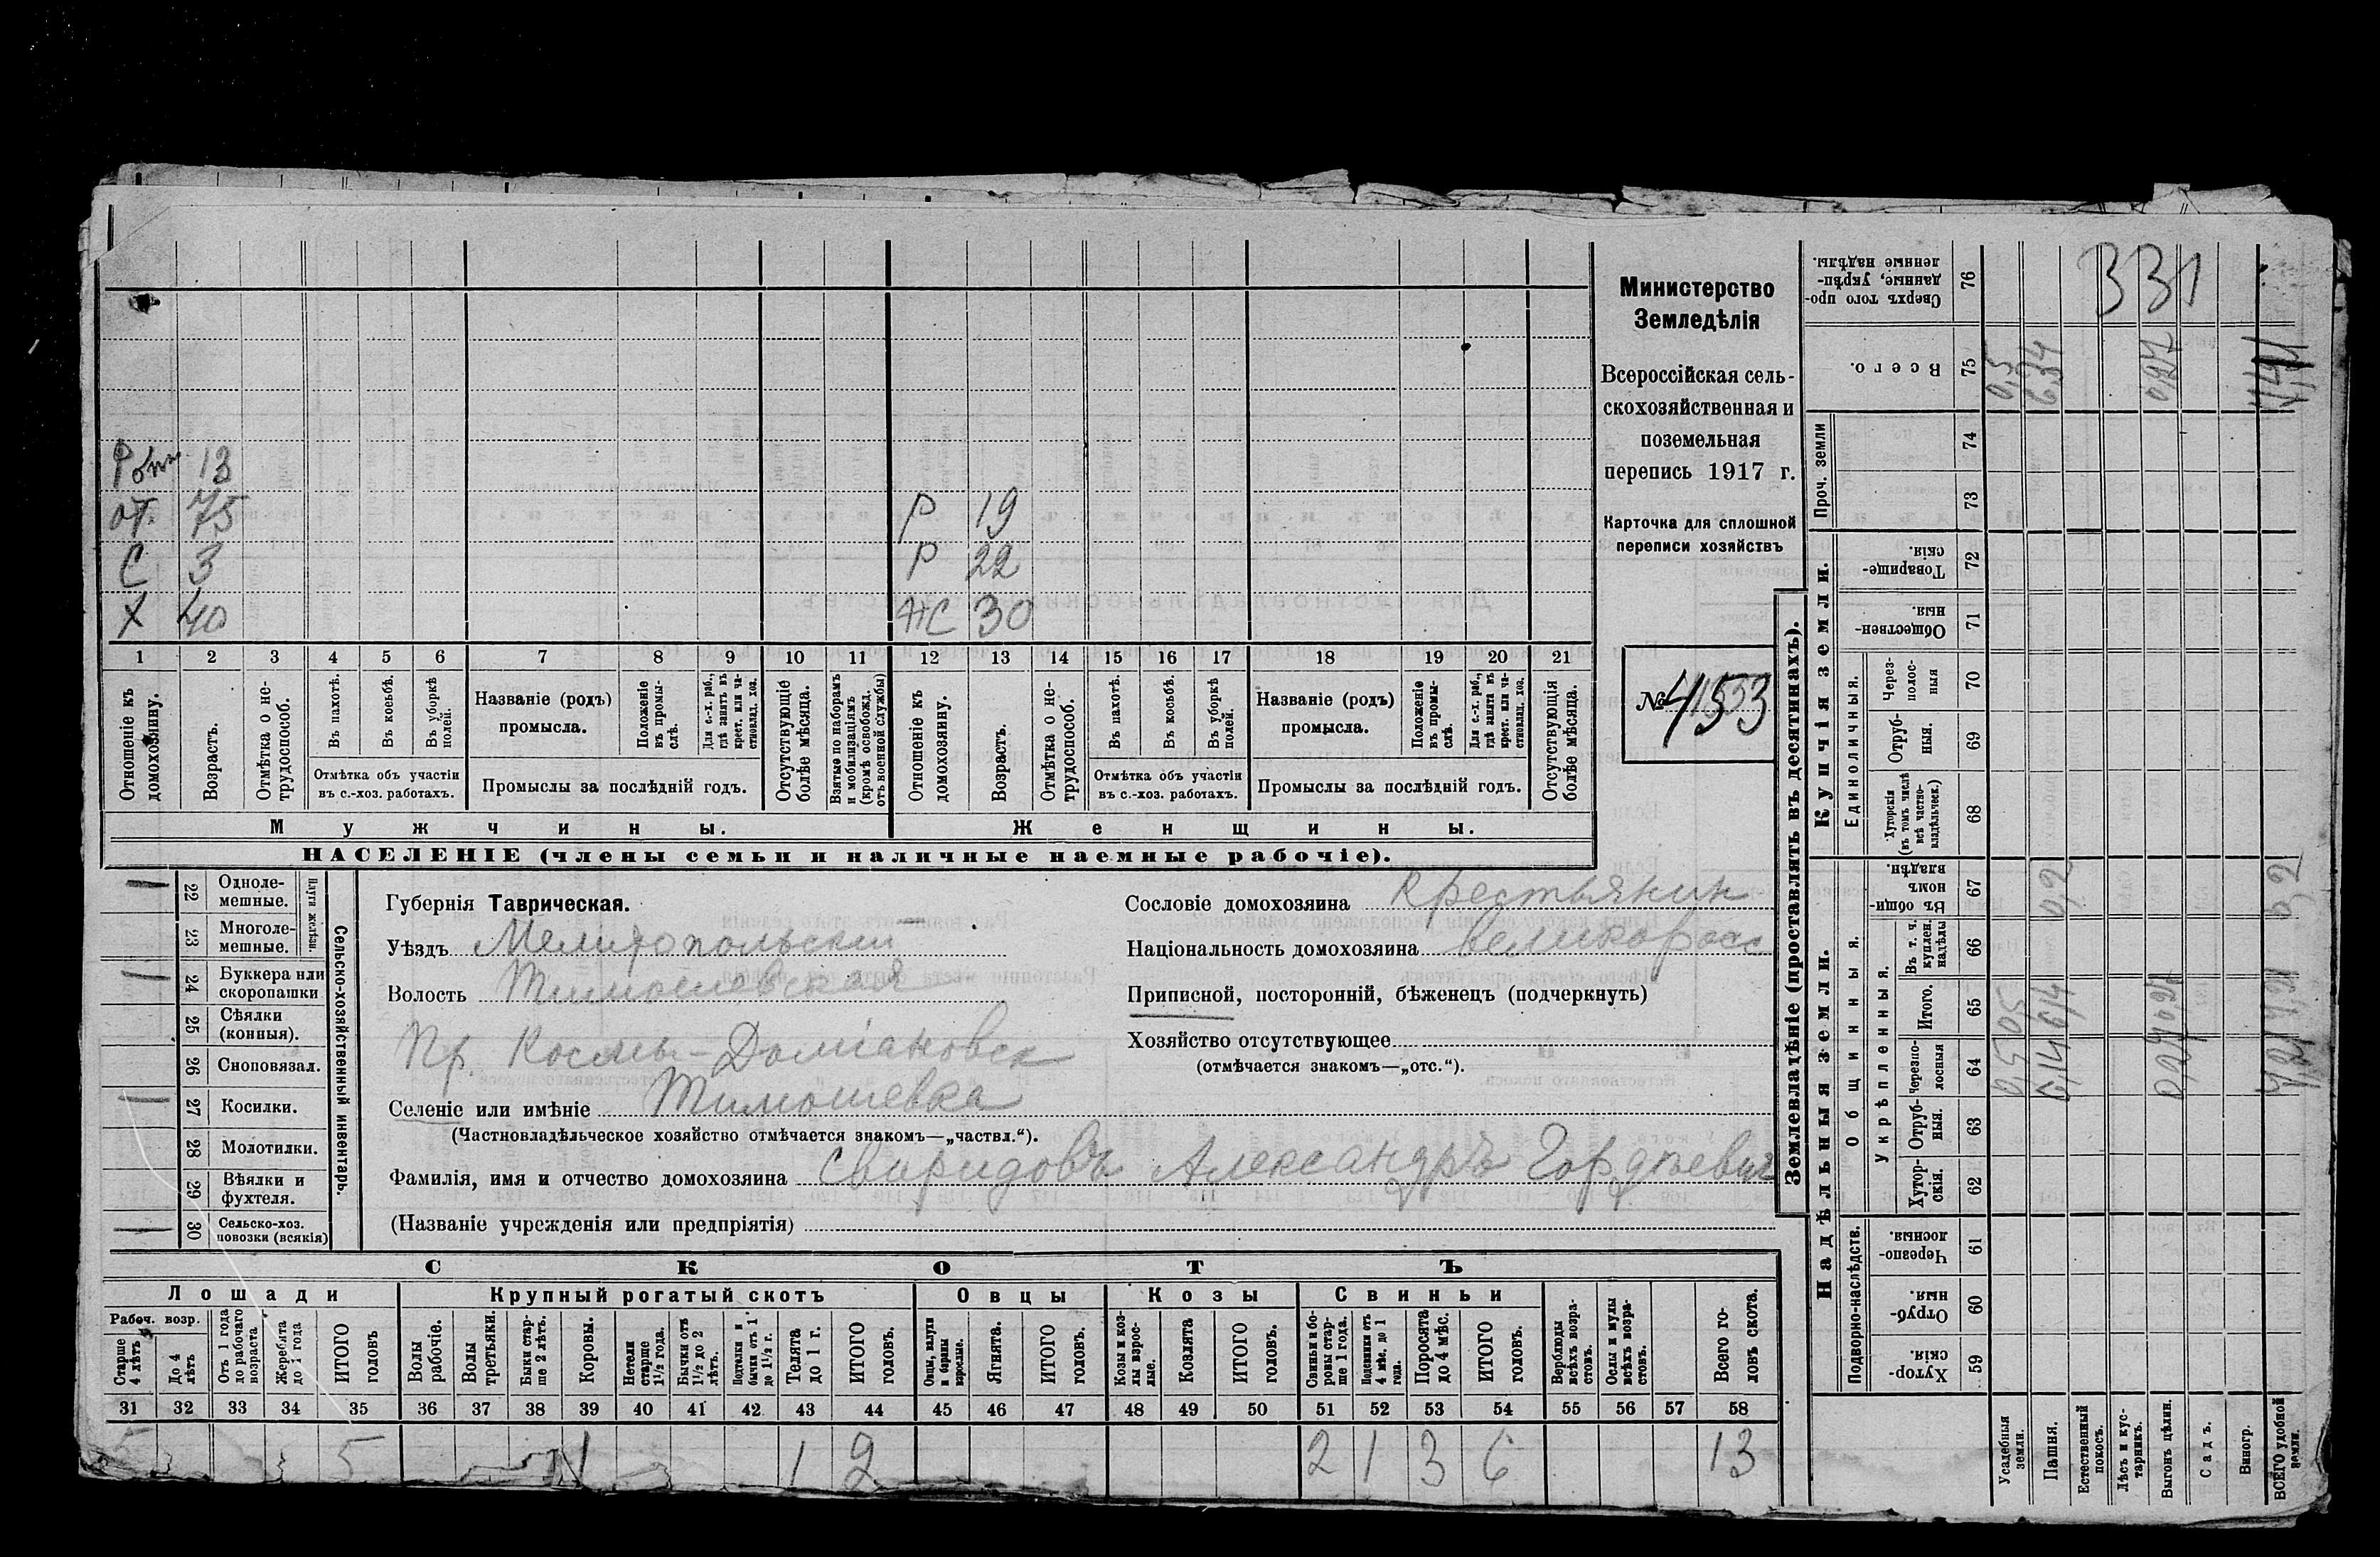 Р 13
от. 75
С 3
Х 40
Р 19
Р 22
ЖС 30
1 2 3 4 5 6 7 8 9 10 11 12 13 14 15 16 17 18 19 20 21
Отношеніе къ домохозяину.
Возрастъ.
Отмѣтка о не-
трудоспособ.
Въ пахотѣ.
Въ косьбѣ.
Въ уборкѣ полей.
Отмѣтка объ участіи
въ с.-хоз. работахъ.
Названіе (родъ)
промысла.
Положеніе
въ промы-
слѣ.
Для с.-х. раб.,
гдѣ занятъ въ
крест. или ча-
стновлад. хоз.
Промыслы за послѣдній годъ.
Отсутствующіе
болѣе мѣсяца.
Взятые по наборамъ
и мобилизаціямъ
(кромѣ освобожд.
отъ военной службы)
Отношеніе къ
домохозяину.
Возрастъ.
Отмѣтка о не-
трудоспособ.
Въ пахотѣ.
Въ косьбѣ.
Въ уборкѣ
полей.
Отмѣтка объ участіи
въ с.-хоз. работахъ.
Названіе (родъ)
промысла.
Положеніе
въ промы-
слѣ.
Для с.-х. раб.,
гдѣ занята въ
крест. или ча-
стновлад. хоз.
Промыслы за послѣдній годъ.
Отсутствующія
болѣе мѣсяца.
Мужчины.
Женщины.
НАСЕЛЕНІЕ (члены семьи и наличные наемные рабочіе).
Министерство
Земледѣлія
Всероссійская сель-
скохозяйственная и
поземельная
перепись 1917 г.
Карточка для сплошной
переписи хозяйствъ
№ 4153
Сельско-хозяйственный инвентарь.
Плуги желѣзн.
22 Одноле-
мешные.
23 Многоле-
мешные.
24 Буккера или
скоропашки
25 Сѣялки
(конныя).
26 Сноповязал.
27 Косилки.
28 Молотилки.
29 Вѣялки и
фухтеля.
30 Сельско-хоз.
повозки (всякія)
Губернія Таврическая.
Уѣздъ Мелитопольскій
Волость Тимошевская
Пр. Космы-Доміановск
Селеніе или имѣніе Тимошевка
(Частновладѣльческое хозяйство отмѣчается знакомъ—„частвл.“).
Фамилія, имя и отчество домохозяина Свиридовъ Александръ Гордѣевич
(Названіе учрежденія или предпріятія)
Сословіе домохозяина крестьянин
Національность домохозяина великоросс
Приписной, посторонній, бѣженецъ (подчеркнуть)
Хозяйство отсутствующее
(отмѣчается знакомъ—„отс.“).
СКОТЪ
Лошади
Крупный рогатый скотъ
Овцы
Козы
Свиньи
Рабоч. возр.
Старше
4 лѣтъ
До 4
лѣтъ
Отъ 1 года
до рабочаго
возраста
Жеребята
до 1 года
ИТОГО
головъ
Волы
рабочіе.
Волы
третьяки.
Быки стар-
ше 2 лѣтъ.
Коровы.
Нетели
старше
1½ года.
Бычки отъ
1½ до 2
лѣтъ.
Подтелки и
бычки отъ 1
до 1½ г.
Телята
до 1 г.
ИТОГО
головъ.
Овцы, валухи
и бараны
взрослые.
Ягнята.
ИТОГО
головъ.
Козы и коз-
лы взрос-
лые.
Козлята
ИТОГО
головъ.
Свиньи и бо-
ровы стар-
ше 1 года.
Подсвинки отъ
4 мѣс. до 1
года.
Поросята
до 4 мѣс.
ИТОГО
головъ.
Верблюды
всѣхъ возра-
стовъ.
Ослы и мулы
всѣхъ возра-
стовъ.
Всего го-
ловъ скота.
31 32 33 34 35 36 37 38 39 40 41 42 43 44 45 46 47 48 49 50 51 52 53 54 55 56 57 58
5 5 1 1 2 2 1 3 6 13
Землевладѣніе (проставлять въ десятинахъ).
Надѣльныя земли.
Купчія земли.
Проч. земли
Подворно-наслѣдств.
Общинныя.
Укрѣпленныя.
Единоличныя.
Сверхъ того про-
данные, укрѣп-
ленные надѣлы.
76
Всего.
75
74
73
Товарище-
скія.
72
Обществен-
ныя.
71
Через-
полос-
ныя
70
Отруб-
ныя.
69
Хуторскія
(въ томъ числѣ
всѣ частно-
владѣльческ.)
68
Въ общи-
номъ
владѣн.
67
Въ т. ч.
куплен.
надѣлы
66
Итого.
65
Черезпо-
лосныя
64
Отруб-
ныя.
63
Хутор-
скія.
62
Черезпо-
лосныя
61
Отруб-
ныя.
60
Хутор-
скія
59
331
0,5
6,34
0,2
Усадебныя
земли.
Пашня.
Естественный
покосъ.
Лѣсъ и кус-
тарникъ.
Выгонъ цѣлин.
Садъ.
Виногр.
ВСЕГО удобной
земли.